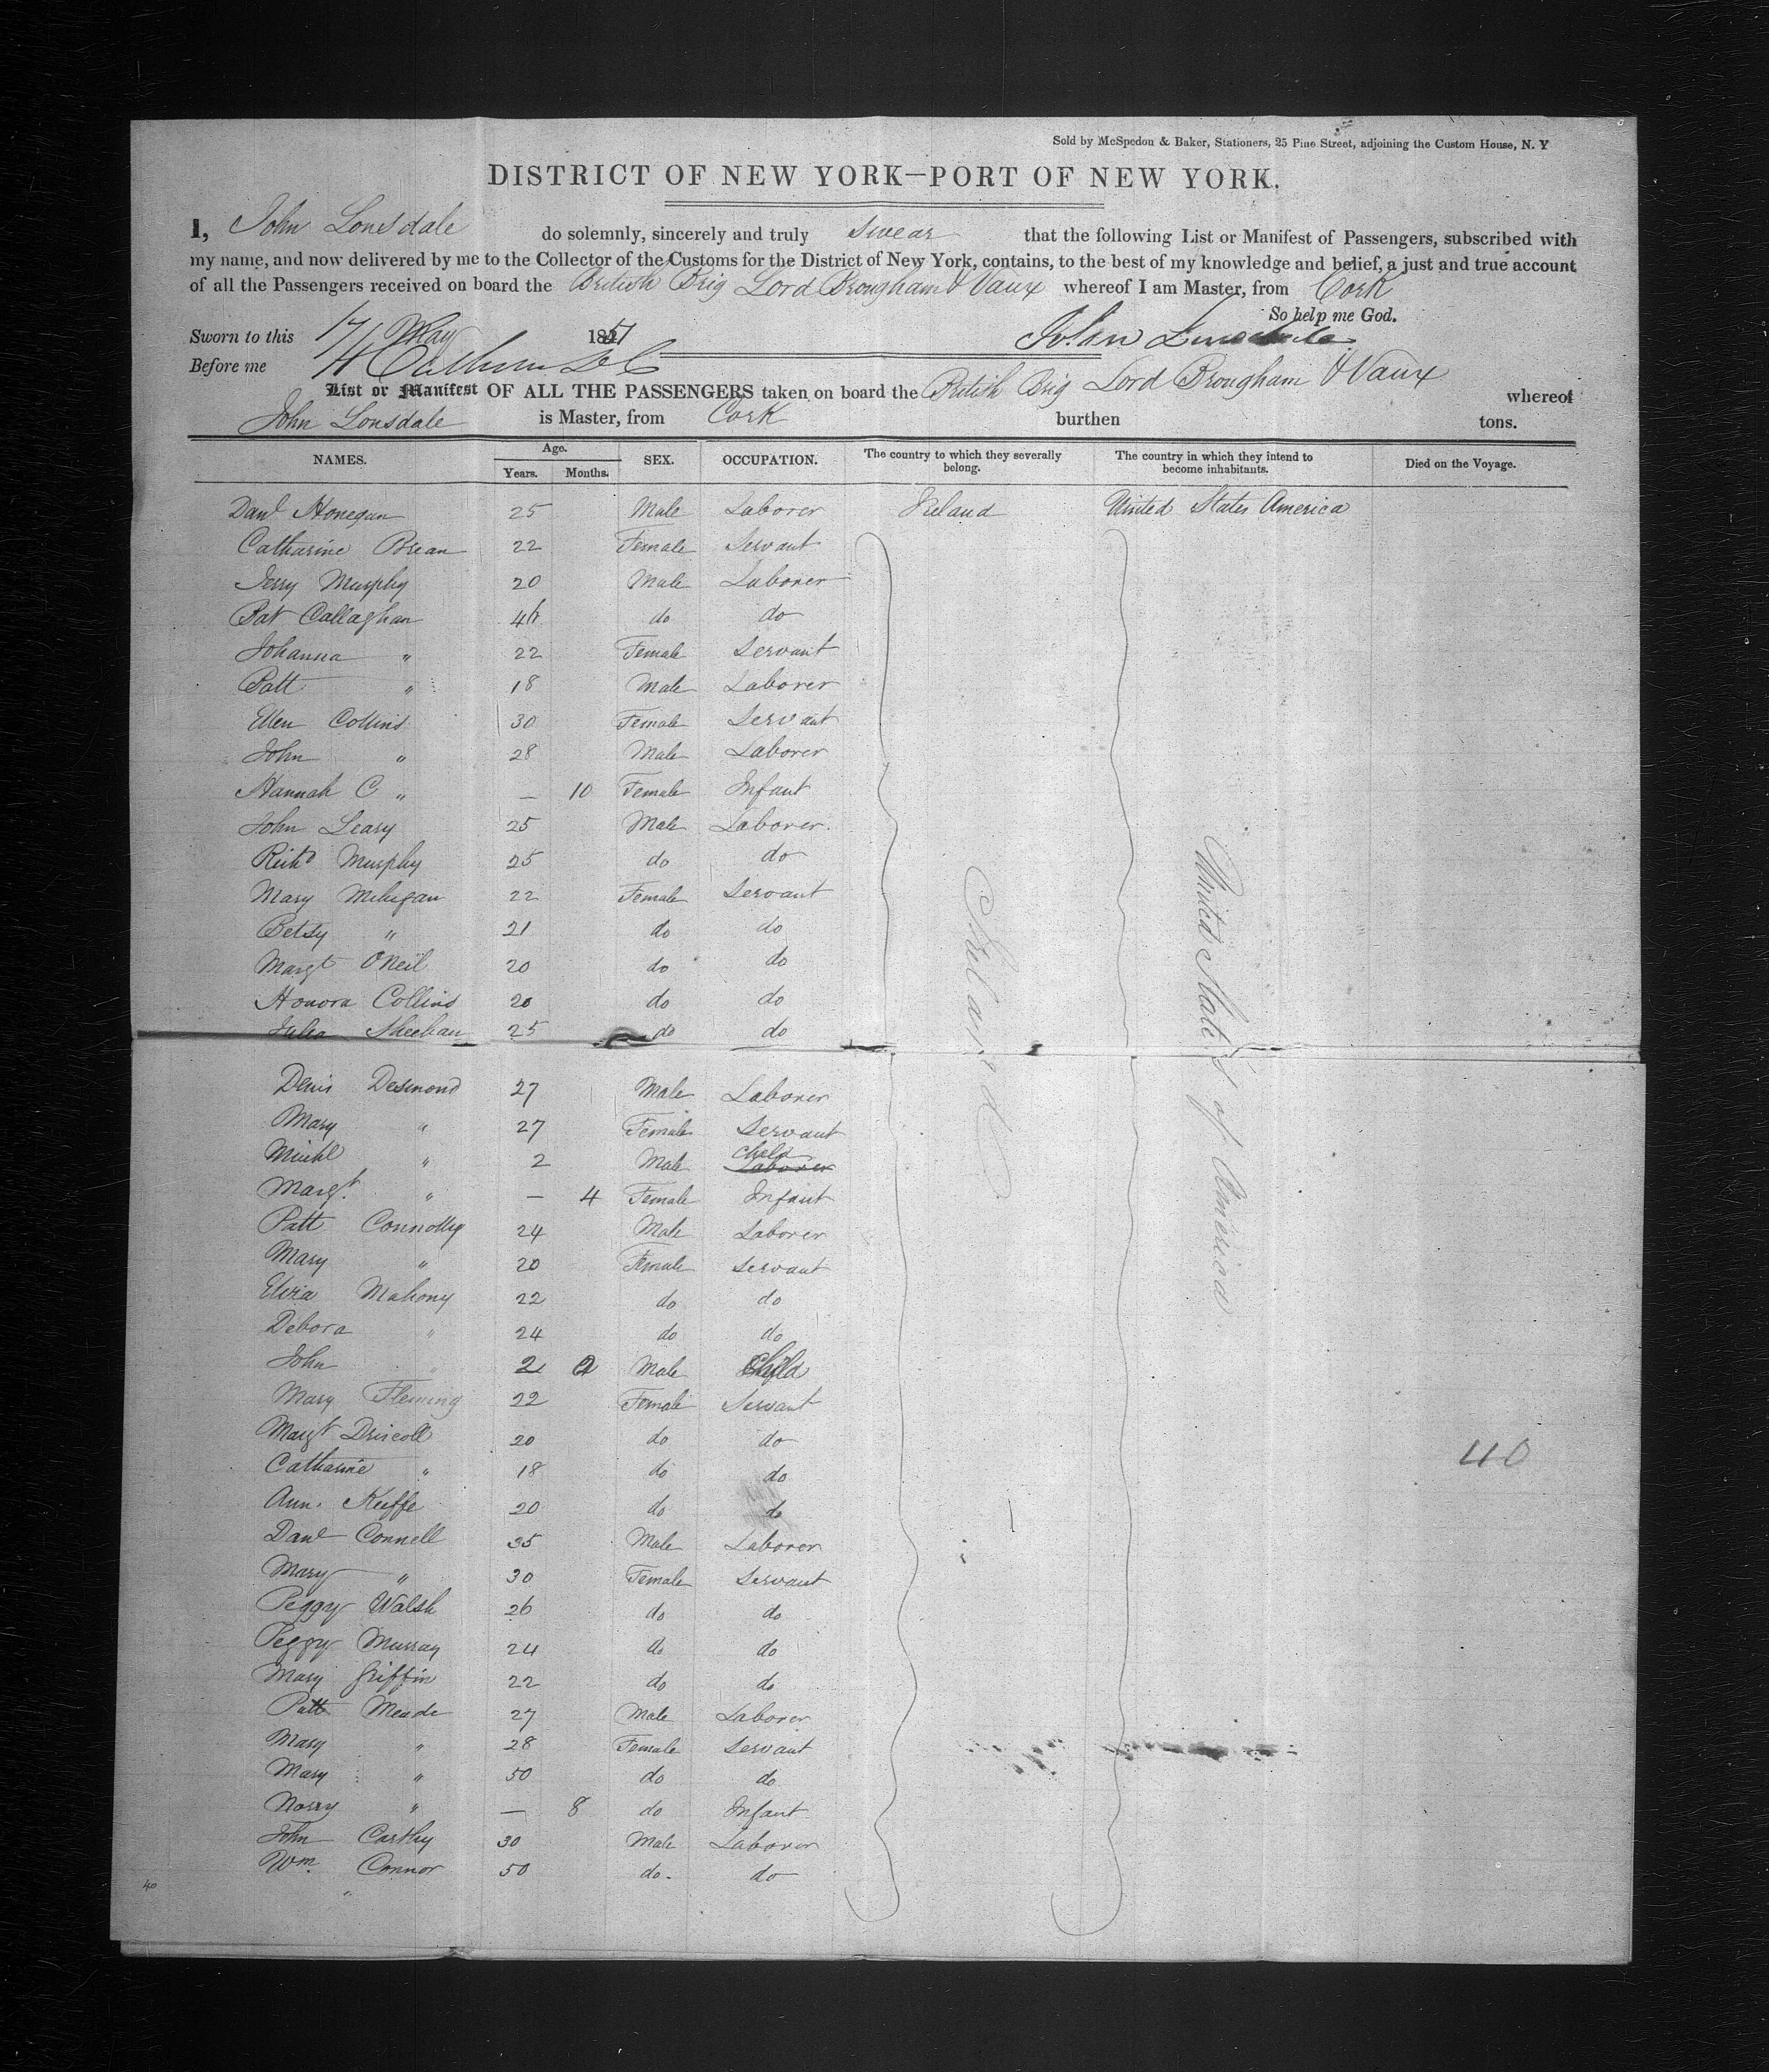 Sold by McSpedon & Baker, Stationers, 25 Pine Street, adjoining the Custom House, N. Y
DISTRICT OF NEW YORK—PORT OF NEW YORK.
I, John Lonsdale do solemnly, sincerely and truly swear that the following List or Manifest of Passengers, subscribed with
my name, and now delivered by me to the Collector of the Customs for the District of New York, contains, to the best of my knowledge and belief, a just and true account
of all the Passengers received on board the British Brig Lord Brougham & Vaux whereof I am Master, from Cork
So help me God.
Sworn to this 17 May 1851 John Lonsdale
Before me
List or Manifest OF ALL THE PASSENGERS taken on board the British Brig Lord Brougham & Vaux whereof
John Lonsdale is Master, from Cork burthen tons.
NAMES. Age. Years. Months. SEX. OCCUPATION. The country to which they severally belong. The country in which they intend to become inhabitants. Died on the Voyage.
Danl Honegan 25 Male Laborer Ireland United States America
Catharine Brean 22 Female Servant
Jerry Murphy 20 Male Laborer
Pat Callaghan do do
Johanna " 22 Female Servant
Patt " 18 Male Laborer
Ellen Collins 30 Female Servant
John " 28 Male Laborer
Hannah C " — 10 Female Infant
John Leary 25 Male Laborer.
Richd Murphy 25 do do
Mary Mihigan 22 Female Servant
Betsy " 21 do do
Margt O'Neil 20 do do
Honora Collins 20 do do
Julia Sheehan 25 do do
Denis Desmond 27 Male Laborer
Mary " 27 Female Servant
Michl " 2 Male Child Laborer
Margt " — 4 Female Infant
Patt Connolly 24 Male Laborer
Mary " 20 Female Servant
Eliza Mahony 22 do do
Debora " 24 do do
John " 2 Male Child
Mary Fleming 22 Female Servant
Margt Driscoll 20 do do
Catharine " 18 do do
Ann. Keiffe 20 do do
Danl Connell 35 Male Laborer
Mary " 30 Female Servant
Peggy Walsh 26 do do
Peggy Murray 24 do do
Mary Griffin 22 do do
Patt Meade 27 Male Laborer
Mary " 28 Female Servant
Mary " 50 do do
Norry " — 8 do Infant
John Carthy 30 Male Laborer
Wm. Connor 50 do. do
Ireland
United States of America
40
40